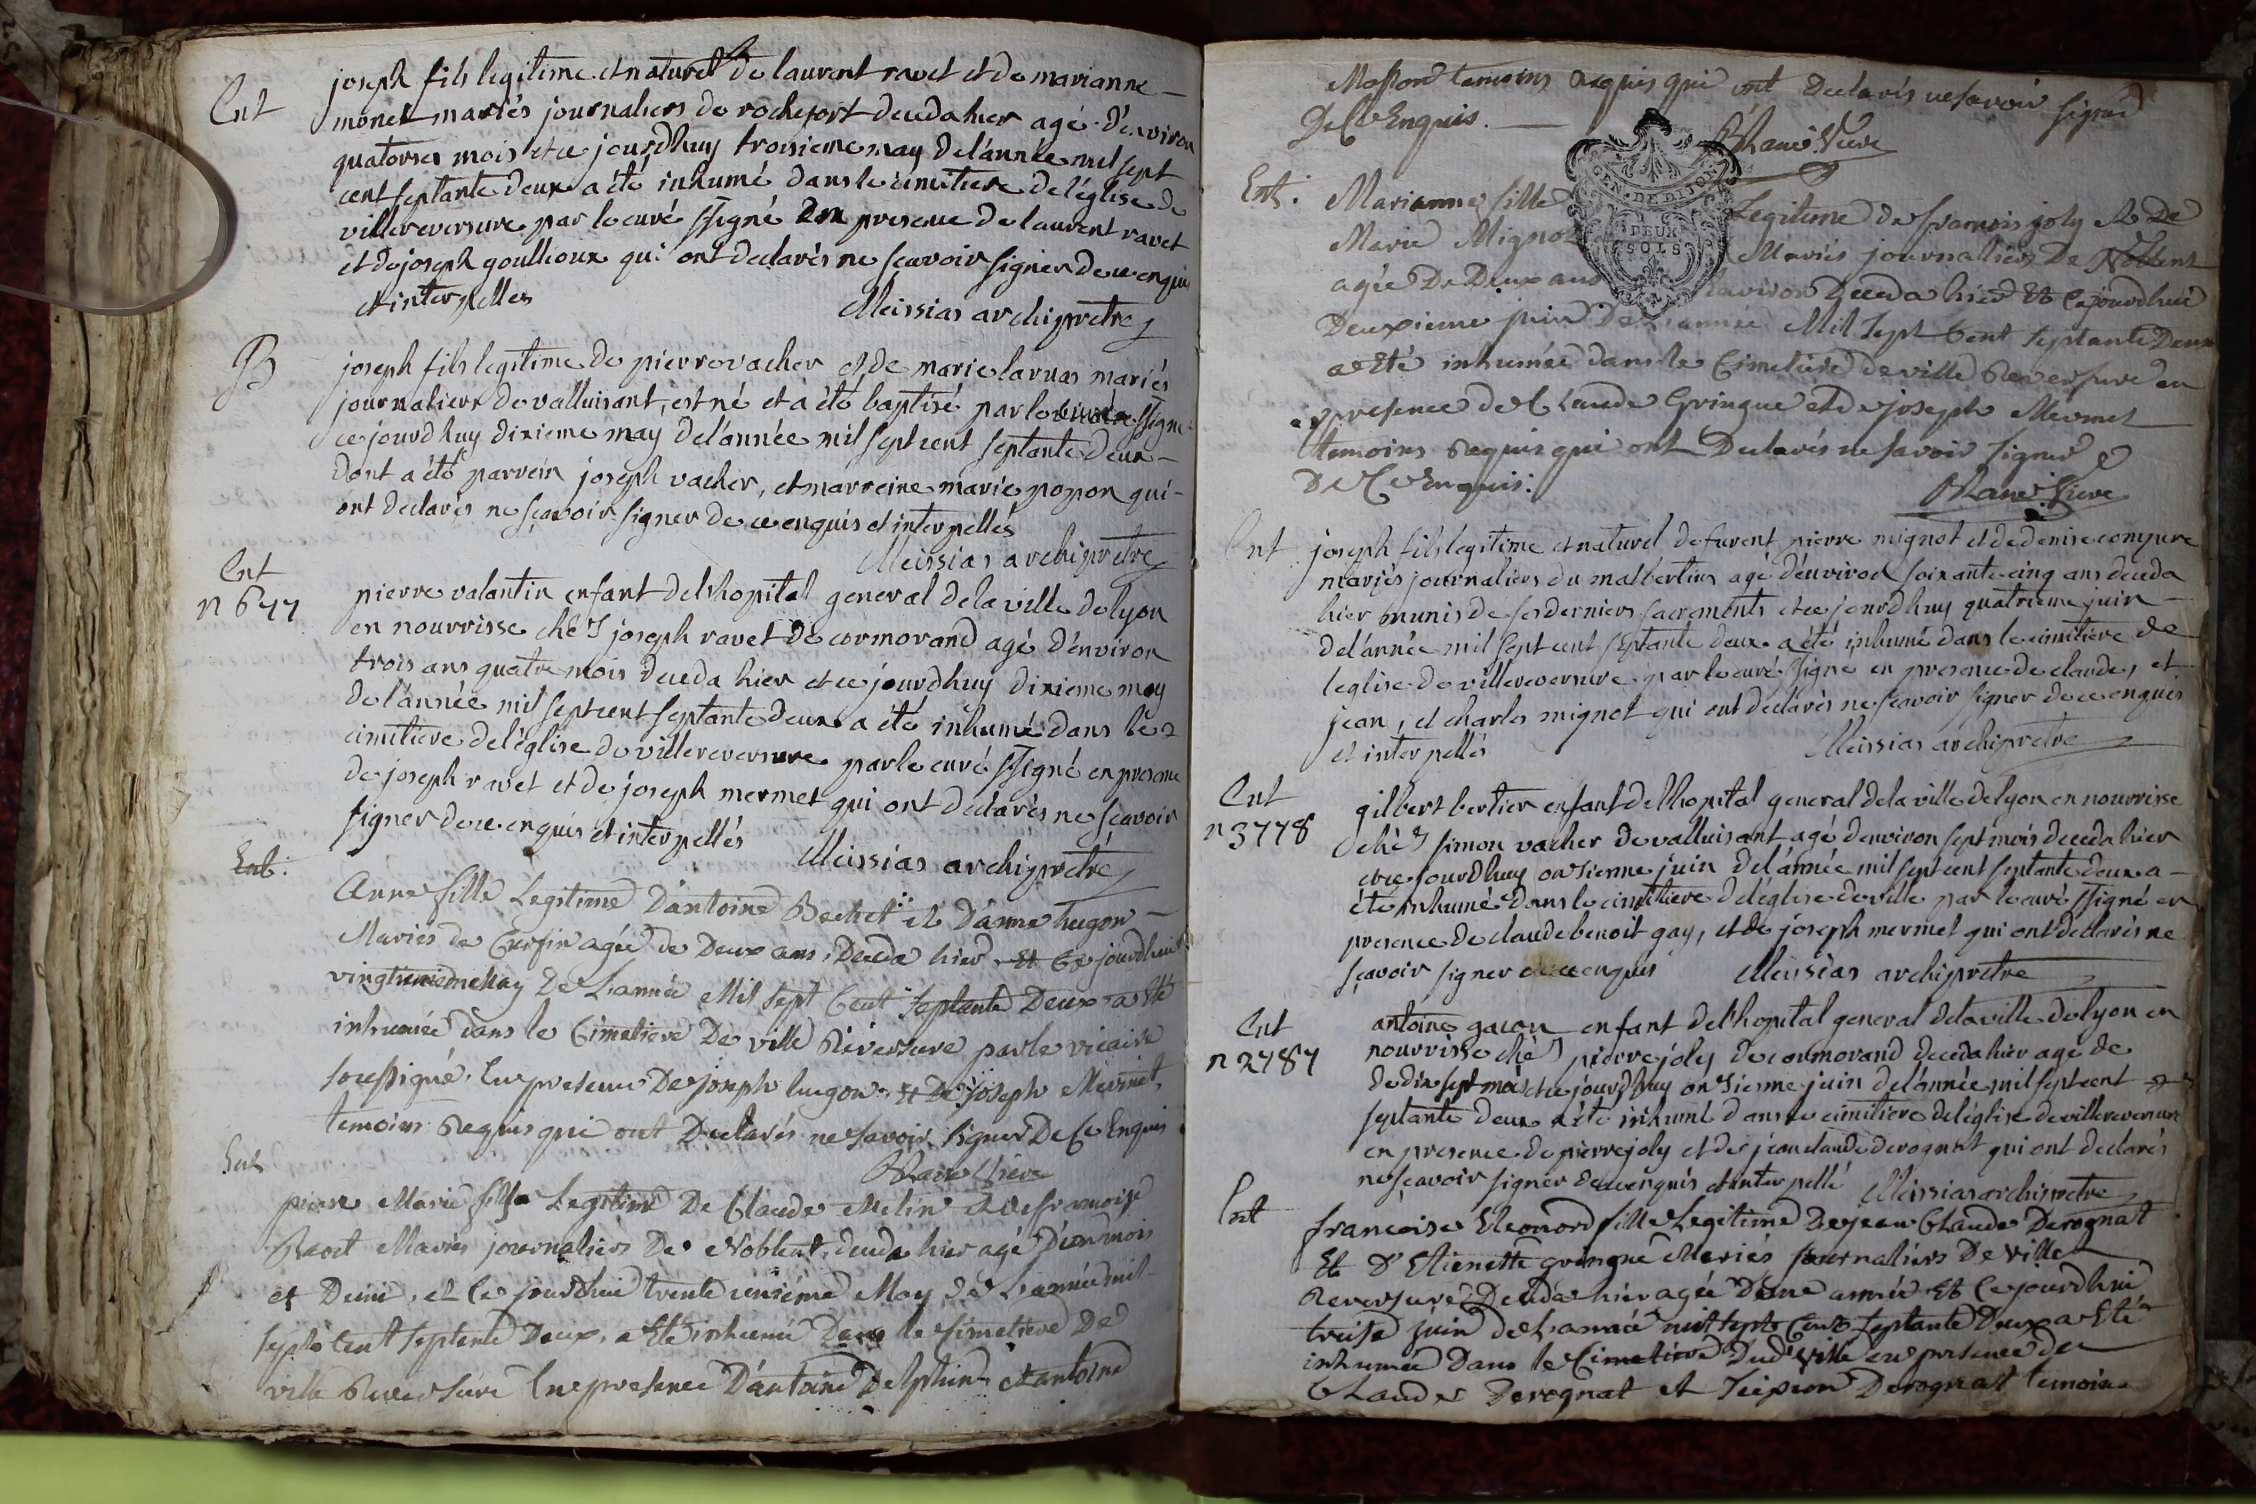 Ent
joseph fils legitime et naturel de laurent ravet et de marianne
monet mariés journaliers de rochefort deceda hier agé d'environ
quatorses mois et ce jourdhuy troisieme may de l'année mil sept
cent septante deux a été inhumé dans le cimitiere de l'église de
villereversure par le curé ssigné en presence de laurent ravet
et de joseph goulloux qui ont declarés ne scavoir signer de ce enquis
et interpelles Meissias archiprètre
B
joseph fils legitime de pierre vacher et de marie larnas mariés
journaliers de valluisant, est né et a été baptisé par le curé ssigné
ce jourdhuy dixieme may de l'année mil sept cent septante deux
dont a été parrein joseph vacher, et marreine marie popon qui
ont declarés ne scavoir signer de ce enquis et interpellés
Meissias archiprètre
Ent
n 677
pierre valantin enfant de l'hopital general de la ville de lyon
en nourrisse chéz joseph ravet de cormorand agé d'environ
trois ans quatre mois deceda hier et ce jourdhuy dixieme may
de l'année mil sept cent septante deux a été inhumé dans le
cimitiere de l'église de villereversure par le curé ssigné en presence
de joseph ravet et de joseph mermet qui ont declarés ne scavoir
signer de ce enquis et interpellés Meissias archiprètré
Ent.
Anne fille Legitime D'antoine Bechet et D'anne hugon
Mariés de Curfin agée de Deux ans, Deceda hier Et Ce jourdhuit
vingtieme May De L'année Mil Sept Cent Septante Deux a Eté
inhumée dans le Cimetiere De ville Réversure par le vicaire
soussigné. En presence De joseph hugon Et De joseph Mermet,
temoins Requis qui ont Declarés ne savoir Signer De Ce Enquis
Ent
pierre Marie fils Legitime De Claude Melin et de francoise
Mariés journaliers De Noblent, deceda hier agé D'un mois
et Demi, et Ce jourdhui trente unieme May de L'année mil
Sept Cent Septente Deux, a Eté inhumé Dans le Cimetiere De
ville Reversure En presence D'antoine Delphin et antoine
temoins Requis qui ont Declarés ne savoir Signer
De Ce Enquis.
Ent.
GEN. DE DIJON
DEUX
SOLS
Marianne fille Legitime de francois joly et De
Marie Mignot Mariés journaliers De Noblent
agée De Deux ans Deceda hier Et Ce jourdhui
Deuxieme juin De L'année Mil Sept Cent Septante Deux
a Eté inhumée dans le Cimetiere de ville Reversure en
presence de Claude Gringue et de joseph Mermet
temoins Requis qui ont Declarés ne savoir Signer
De Ce Enquis.
Ent
joseph fils legitime et naturel de furent pierre mignot et de denise compere
mariés journaliers du malbertin agé d'environ soixante cinq ans deceda
hier munis de ses derniers sacrements et ce jourdhuy quatrieme juin
de l'année mil sept cent septante deux a été inhumé dans le cimitiere de
leglise de villereversure par le curé ssigné en presence de claude, et
jean, et charles mignot qui ont declarés ne scavoir signer de ce enquis
et interpellés Meissias archiprètre
Ent
n 3778
gilbert bertier enfant de l'hopital general de la ville de lyon en nourrisse
chéz simon vacher de valluisant agé d'environ sept mois deceda hier
et ce jourdhuy onzieme juin de l'année mil sept cent septante deux a
été inhumé dans le cimitiere de l'église de ville par le curé ssigné en
presence de claude benoit gay, et de joseph mermet qui ont declarés ne
scavoir signer de ce enquis Meissias archiprètre
Ent
n 2787
antoine gacon enfant de l'hopital general de la ville de lyon en
nourrisse chéz pierre joly de cormorand deceda hier agé de
de dix sept mois et ce jourdhuy onzieme juin de l'année mil sept cent
septante deux a été inhumé dans le cimitiere de l'église de villereversure
en presence de pierre joly et de jean claude derognat qui ont declarés
ne scavoir signer de ce enquis et interpellé Meissias archiprètre
Ent
francoise Eleonord fille Legitime De jean Claude Derognat
Et D'Etienette gringue Mariés journaliers De ville
Reversure, Deceda hier agée D'une année Et Ce jourdhui
treise juin de L'année mil sept Cent Septante Deux a Eté
inhumée Dans le Cimetiere Dud' ville en presence de
Claude Derognat et Scipion Derognat temoins